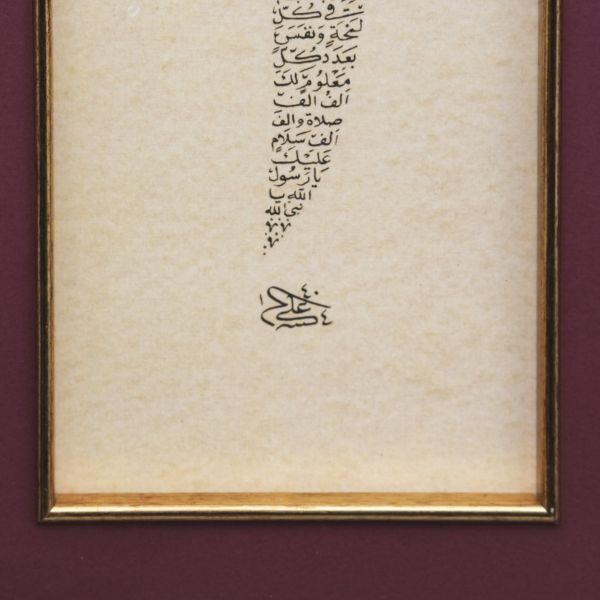 في كلّ
لمحةٍ ونفسَ
بعَدَدِ كلّ
معلُومٍ لكَ
الفُ الفّ
صلاة والفَ
الفّ سَلامٍ
عَليْكَ
يَا رَسُولَ
اللّه يا
نبيّ اللّه